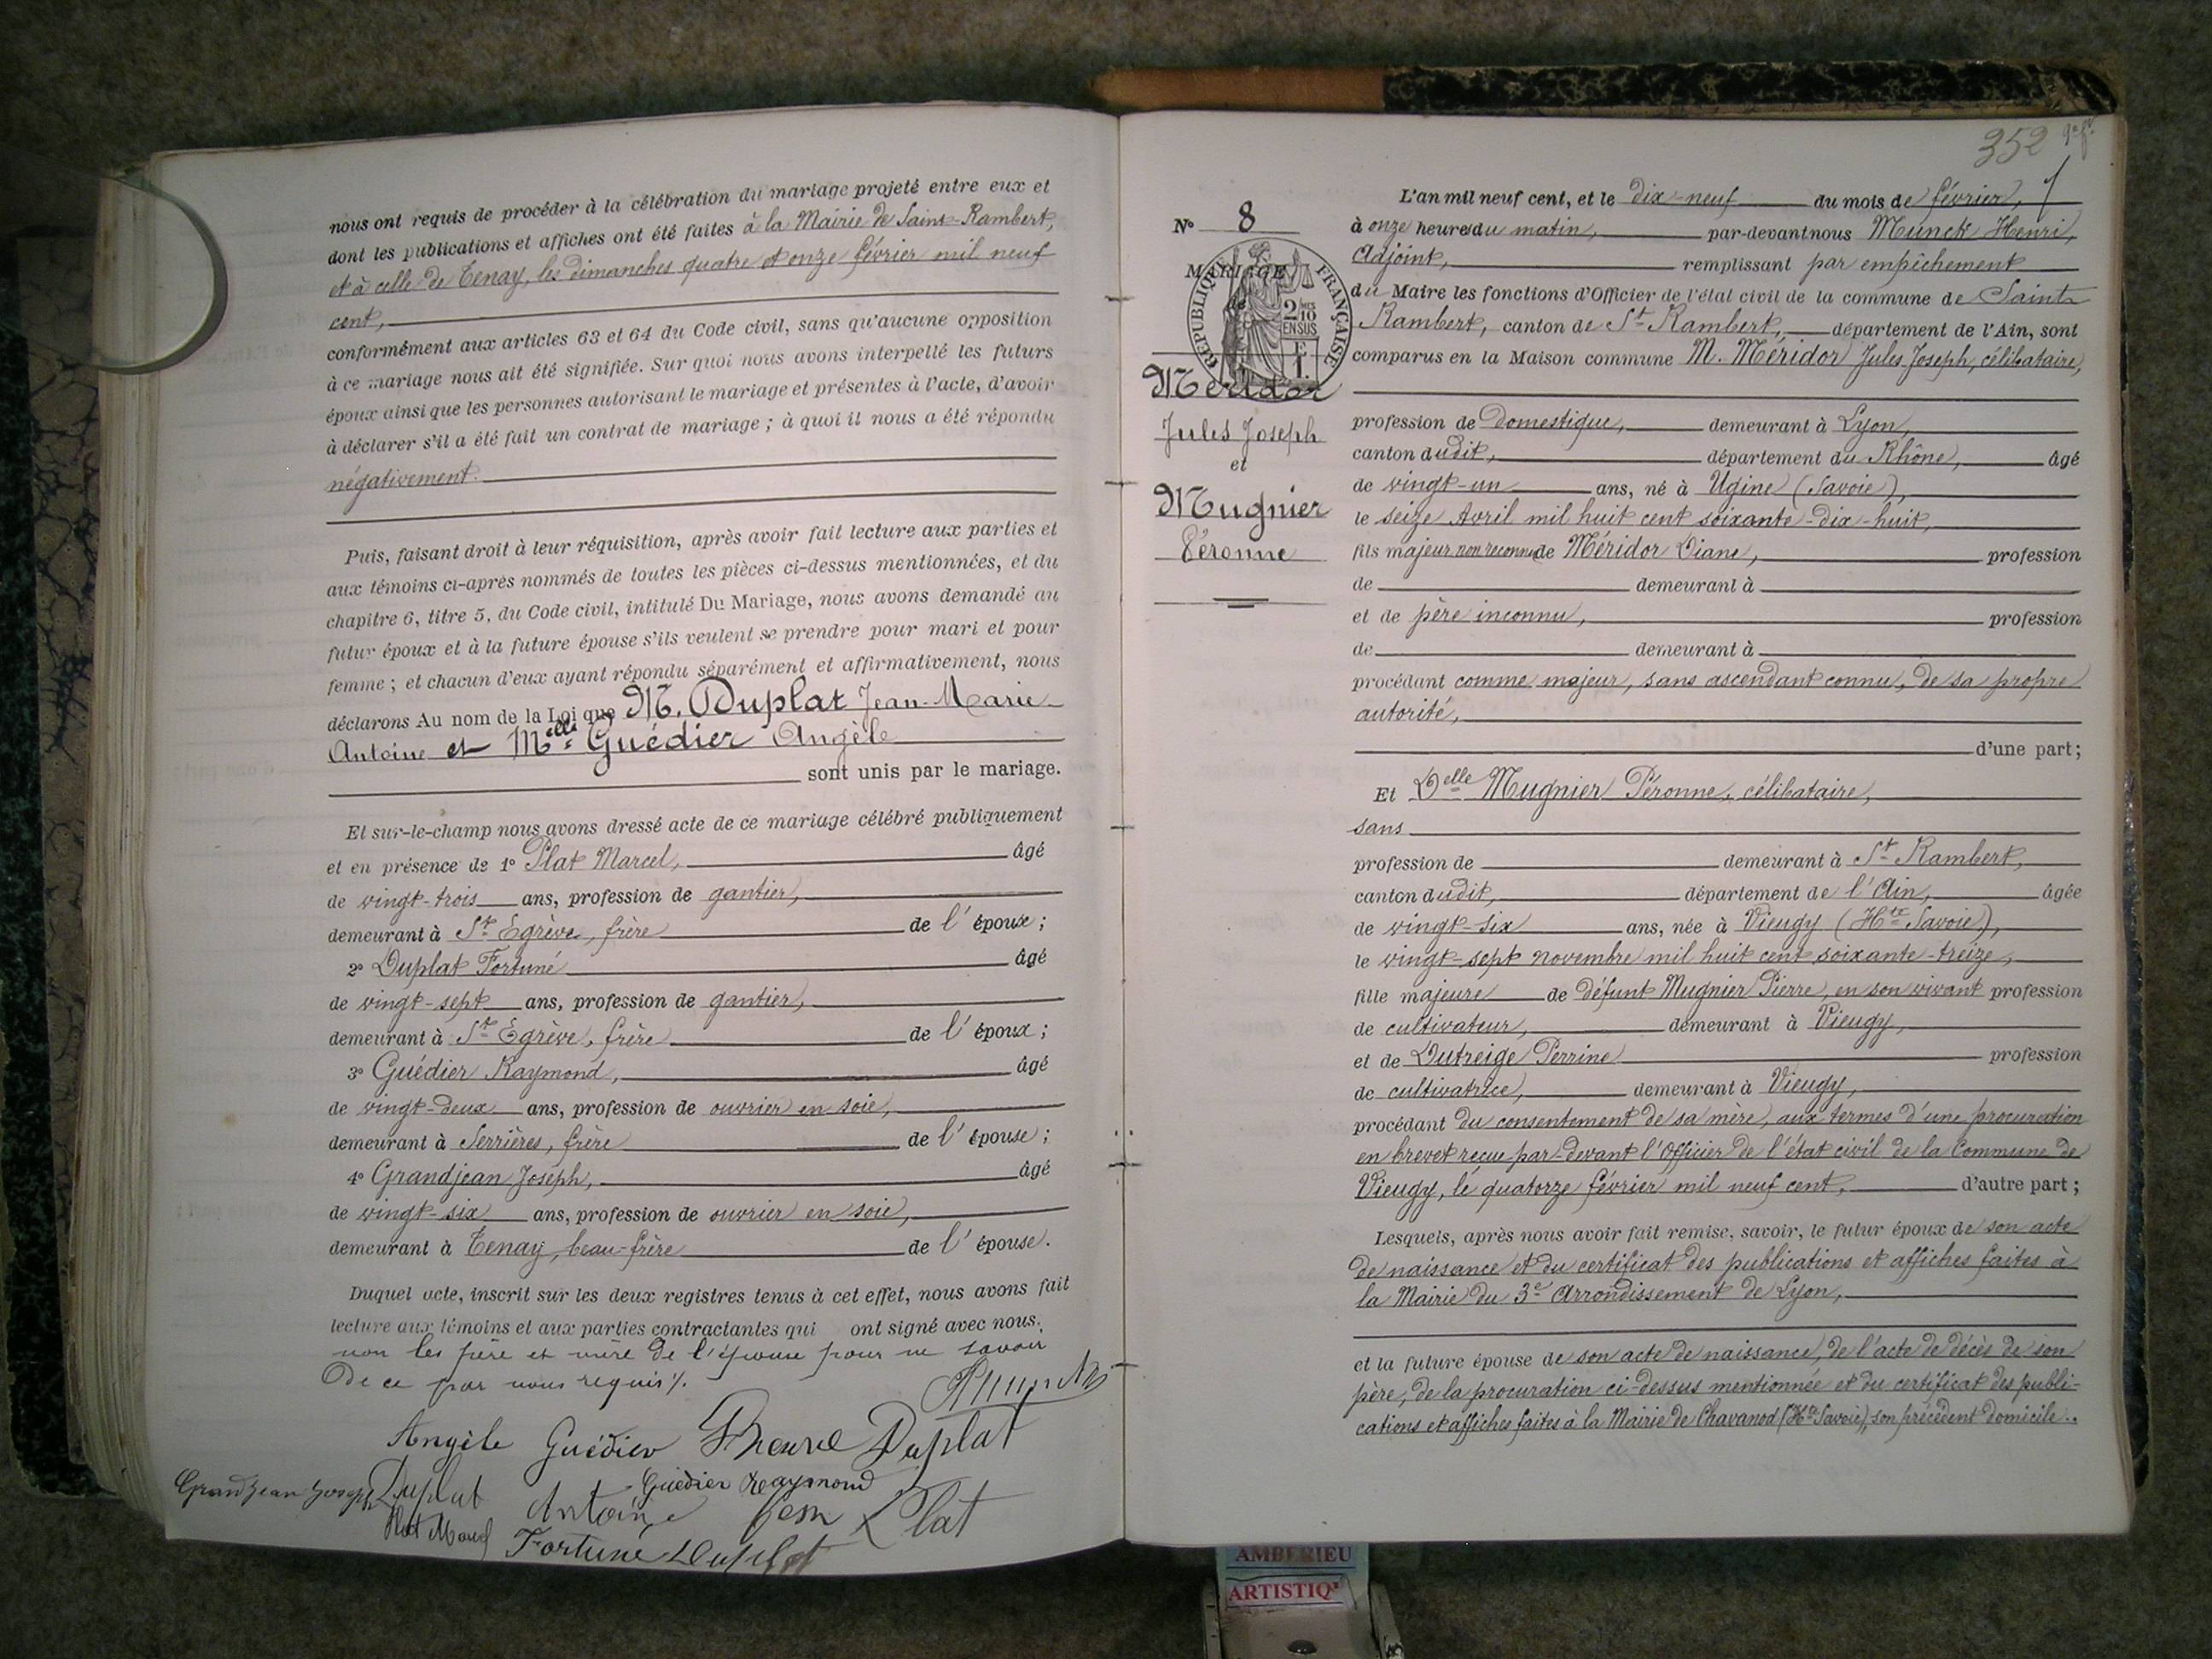 nous ont requis de procéder à la célébration du mariage projeté entre eux et
dont les publications et affiches ont été faites à la Mairie de Saint-Rambert,
et à celle de Tenay, les dimanches quatre et onze février mil neuf
cent,
conformément aux articles 63 et 64 du Code civil, sans qu'aucune opposition
à ce mariage nous ait été signifiée. Sur quoi nous avons interpellé les futurs
époux ainsi que les personnes autorisant le mariage et présentes à l'acte, d'avoir
à déclarer s'il a été fait un contrat de mariage ; à quoi il nous a été répondu
négativement.
Puis, faisant droit à leur réquisition, après avoir fait lecture aux parties et
aux témoins ci-après nommés de toutes les pièces ci-dessus mentionnées, et du
chapitre 6, titre 5, du Code civil, intitulé Du Mariage, nous avons demandé au
futur époux et à la future épouse s'ils veulent se prendre pour mari et pour
femme ; et chacun d'eux ayant répondu séparément et affirmativement, nous
déclarons Au nom de la Loi que M. Duplat Jean-Marie
Antoine et Melle Guédier Angèle
sont unis par le mariage.
Et sur-le-champ nous avons dressé acte de ce mariage célébré publiquement
et en présence de 1° Plat Marcel, âgé
de vingt-trois ans, profession de gantier,
demeurant à St Egrève, frère de l'époux ;
2° Duplat Fortuné âgé
de vingt-sept ans, profession de gantier,
demeurant à St Egrève, frère de l'époux ;
3° Guédier Raymond, âgé
de vingt-deux ans, profession de ouvrier en soie,
demeurant à Serrières, frère de l'épouse ;
4° Grandjean Joseph, âgé
de vingt-six ans, profession de ouvrier en soie,
demeurant à Tenay, beau-frère de l'épouse.
Duquel acte, inscrit sur les deux registres tenus à cet effet, nous avons fait
lecture aux témoins et aux parties contractantes qui ont signé avec nous,
non les père et mère de l'épouse pour ne savoir
De ce par nous requis.
Angèle Guédier Duplat
Guédier Raymond
Grandjean Joseph Duplat Antoine Jean Plat
Plat Marcel Fortuné Duplat
352
N° 8
MARIAGE
de
RÉPUBLIQUE FRANÇAISE
2 10
EN SUS
F
1.
Méridor
Jules Joseph
et
Mugnier
Péronne
L'an mil neuf cent, et le dix-neuf du mois de février,
à onze heures du matin, par-devant nous Munck Henri,
Adjoint, remplissant par empêchement
du Maire les fonctions d'Officier de l'état civil de la commune de Saint-
Rambert, canton de St Rambert, département de l'Ain, sont
comparus en la Maison commune M. Méridor Jules Joseph, célibataire,
profession de domestique, demeurant à Lyon,
canton dudit, département du Rhône, âgé
de vingt-un ans, né à Ugine (Savoie),
le seize Avril mil huit cent soixante-dix-huit,
fils majeur non reconnu de Méridor Diane, profession
de demeurant à
et de père inconnu, profession
de demeurant à
procédant comme majeur, sans ascendant connu, de sa propre
autorité,
d'une part ;
Et Delle Mugnier Péronne, célibataire,
sans
profession de demeurant à St Rambert,
canton dudit, département de l'Ain, âgée
de vingt-six ans, née à Vieugy (Hte Savoie),
le vingt-sept novembre mil huit cent soixante-treize,
fille majeure de défunt Mugnier Pierre, en son vivant profession
de cultivateur, demeurant à Vieugy,
et de Dutreige Perrine profession
de cultivatrice, demeurant à Vieugy,
procédant du consentement de sa mère, aux termes d'une procuration
en brevet reçue par-devant l'Officier de l'état civil de la Commune de
Vieugy, le quatorze février mil neuf cent, d'autre part ;
Lesquels, après nous avoir fait remise, savoir, le futur époux de son acte
de naissance et du certificat des publications et affiches faites à
la Mairie du 3e Arrondissement de Lyon,
et la future épouse de son acte de naissance, de l'acte de décès de son
père, de la procuration ci-dessus mentionnée et du certificat des publi-
cations et affiches faites à la Mairie de Chavanod (Hte Savoie), son précédent domicile..
AMBERIEU
ARTISTIQ